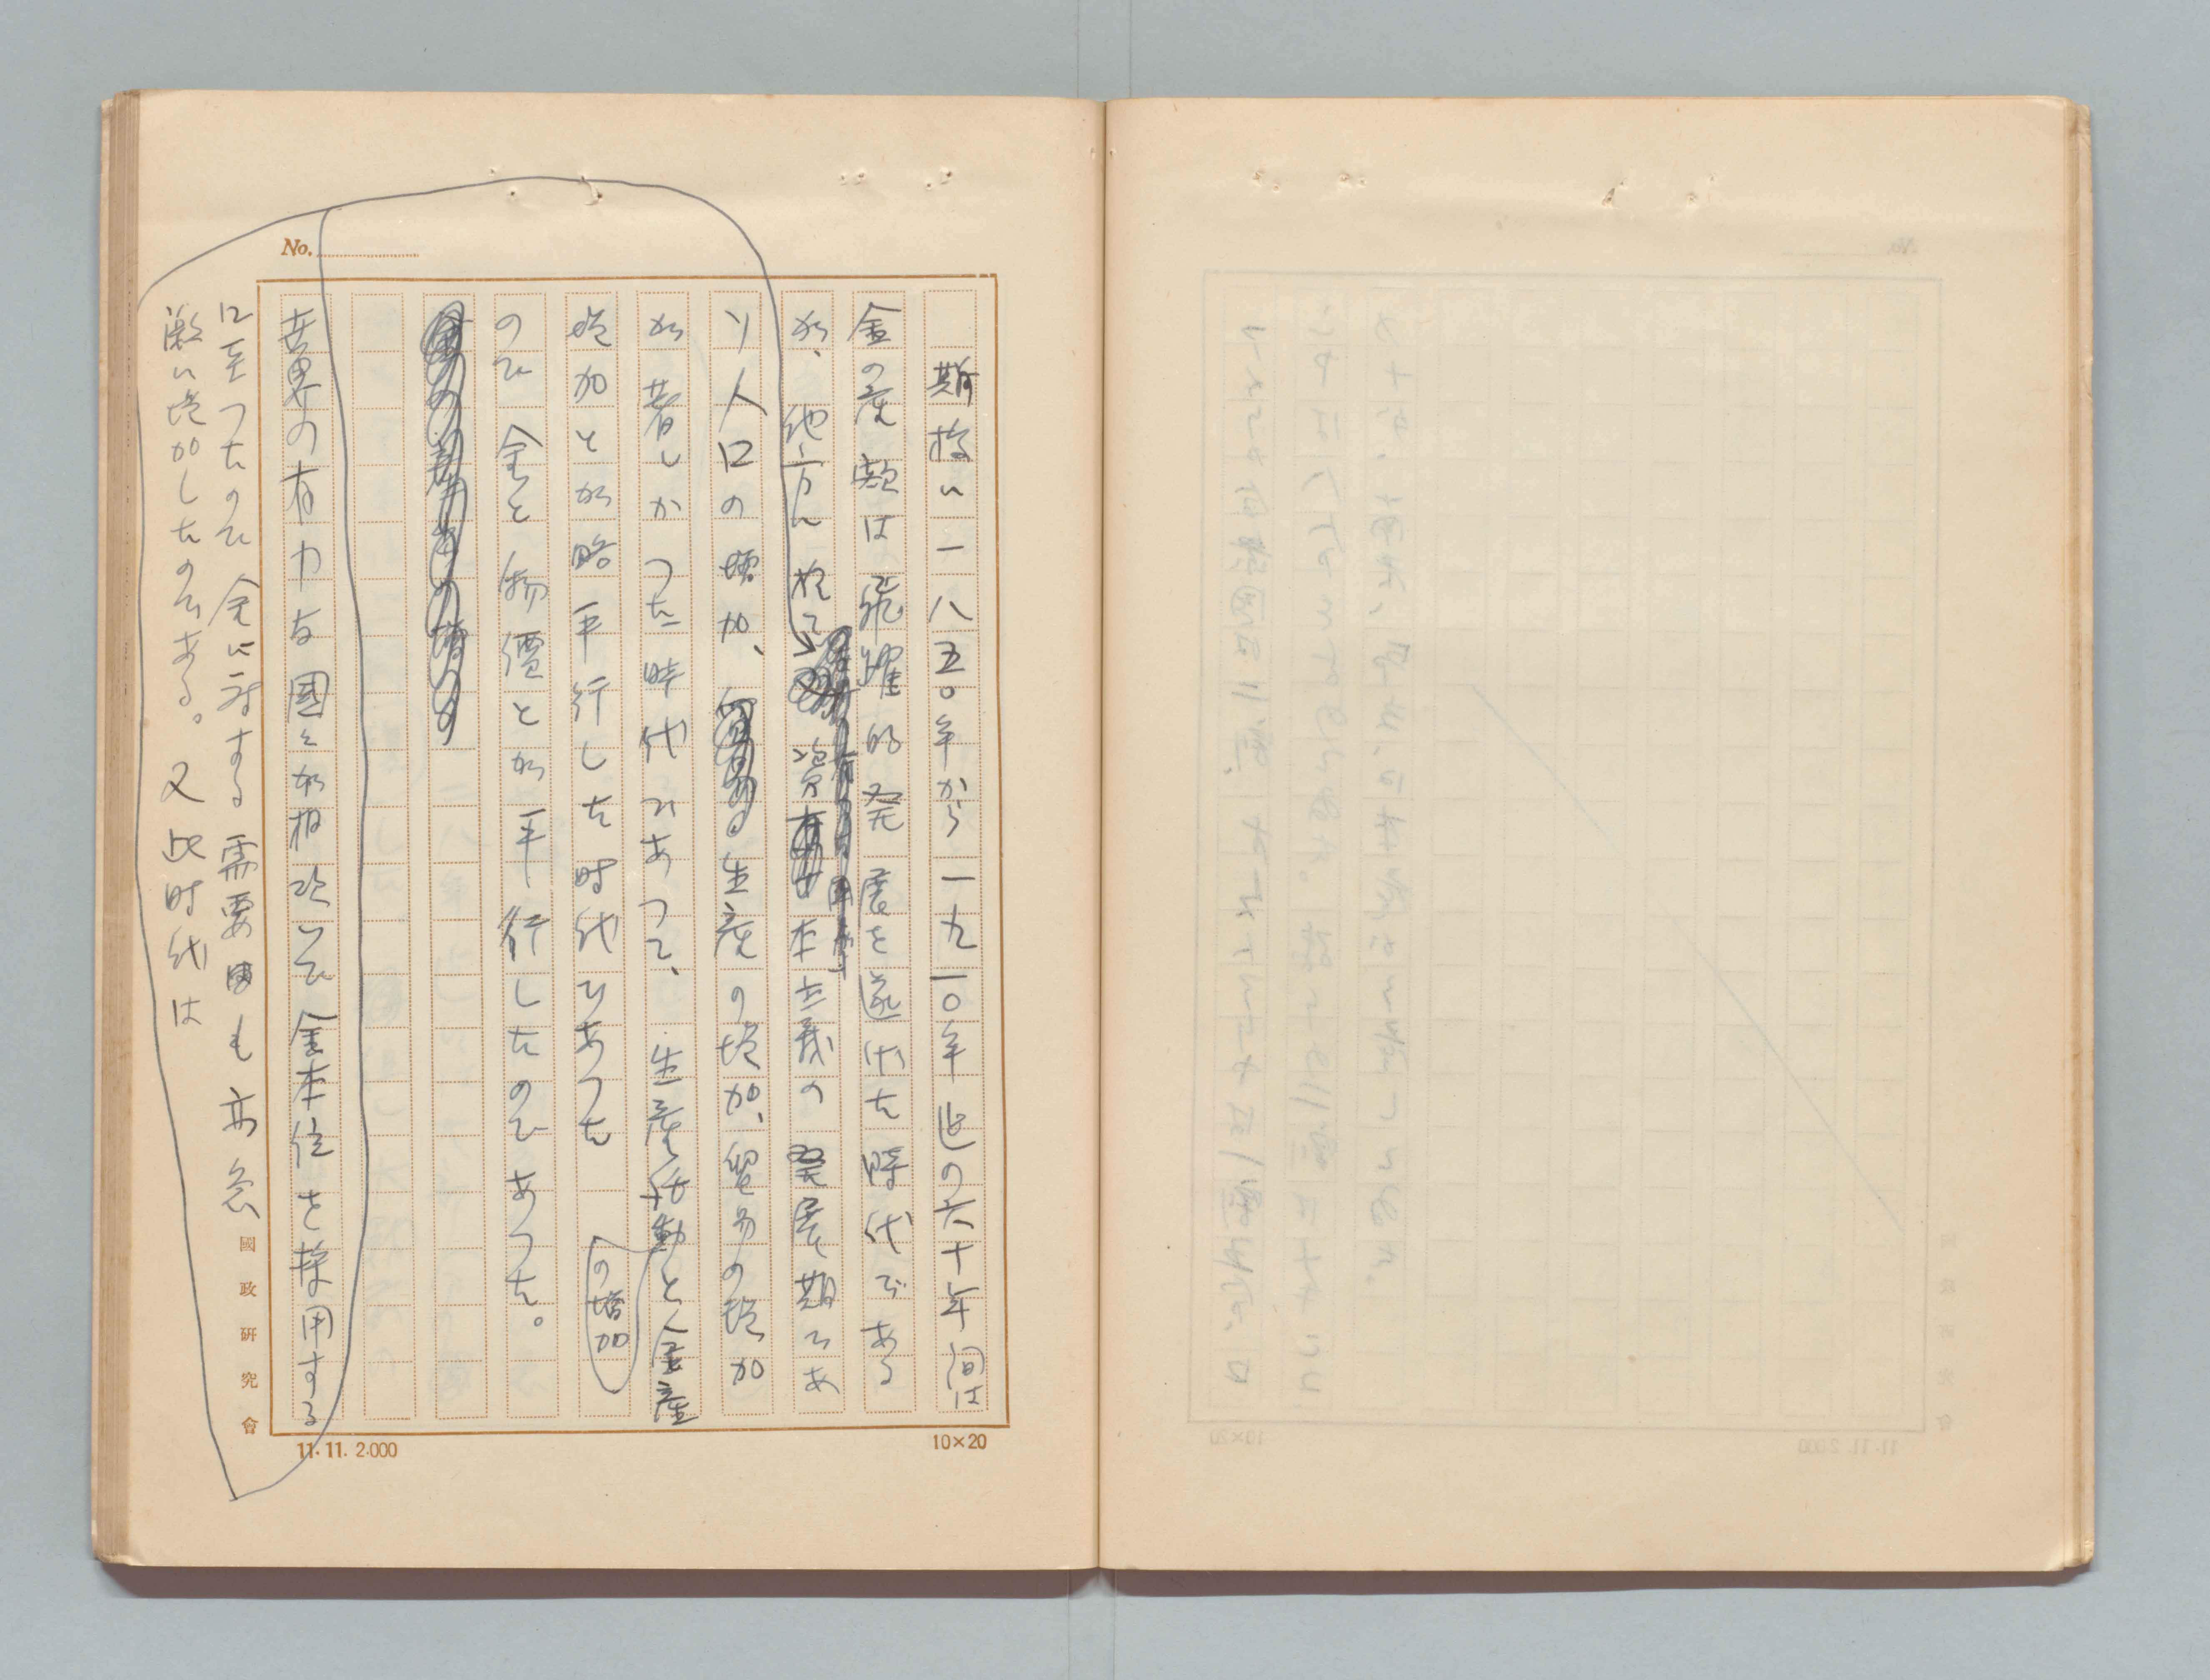 No.
斯様に一八五〇年から一九一〇年迄の六十年間は
金の産額は飛躍的発展を遂げた時代である
が、他方に於て資本主義の発展期であ
り人口の増加、生産の増加、貿易の増加
が著しかつた時代であつて、生産活動と金産
の増加
増加とが略平行した時代であつた
ので金と物價とが平行したのであつた。
世界の有力な國々が相次いで金本位を採用する
に至つたので金に対する需要も亦急
激に増加したのである。又此時代は
國政研究會
11.11.2.000
10×20